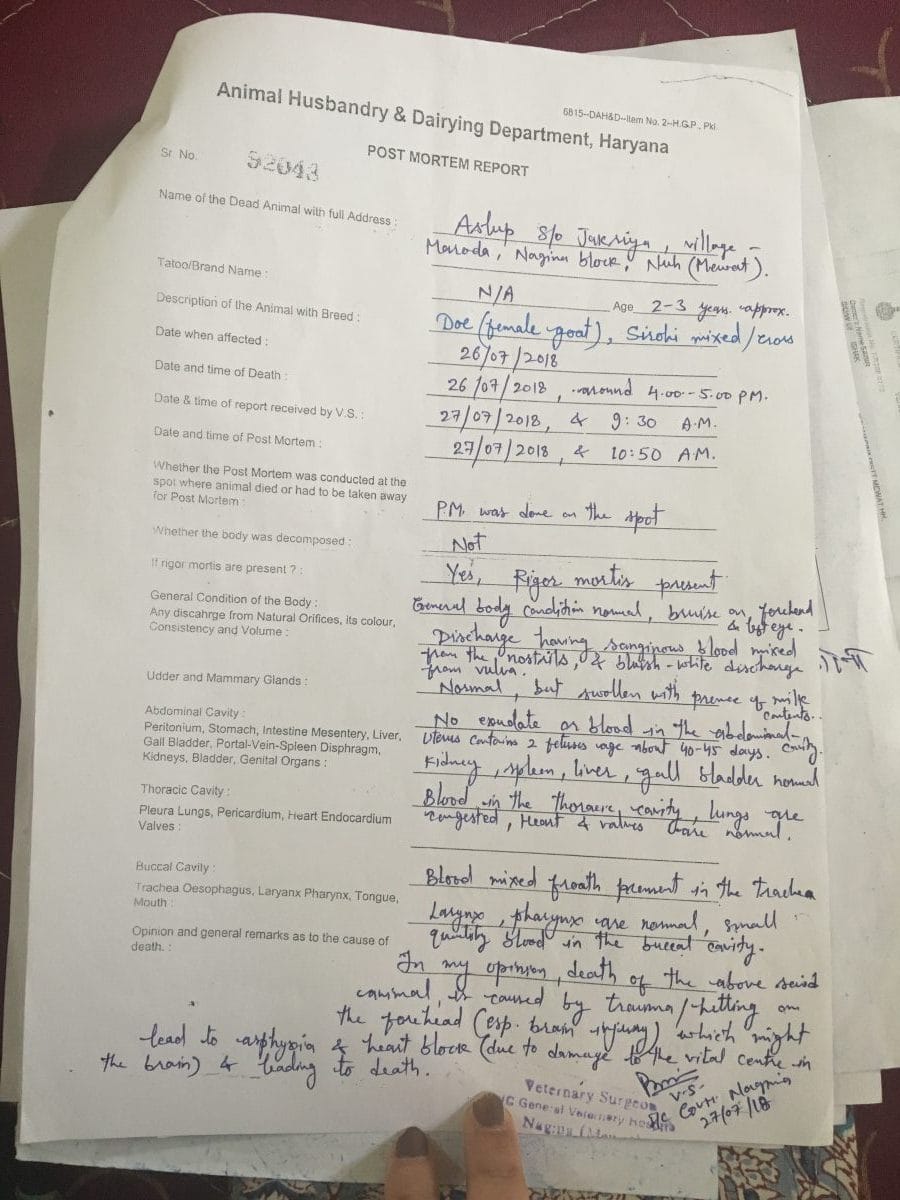 6815--DAH&D--Item No. 2--H.G.P., Pkl.
Animal Husbandry & Dairying Department, Haryana
POST MORTEM REPORT
Sr No. 52043
Name of the Dead Animal with full Address : Aslup S/o Jakriya, village -
Maroda, Nagina block, Nuh (Mewat).
Tatoo/Brand Name : N/A Age 2-3 years. approx.
Description of the Animal with Breed : Doe (female goat), Sirohi mixed/cross
Date when affected : 26/07/2018
Date and time of Death : 26/07/2018, around 4.00--5.00 PM.
Date & time of report received by V.S. : 27/07/2018, & 9:30 A.M.
Date and time of Post Mortem : 27/07/2018, & 10:50 AM.
Whether the Post Mortem was conducted at the
spot where animal died or had to be taken away
for Post Mortem : P.M. was done on the spot
Whether the body was decomposed : Not
If rigor mortis are present ? : Yes, Rigor mortis present
General Condition of the Body : General body condition normal, bruise on forehend
& left eye.
Any discahrge from Natural Orifices, its colour,
Consistency and Volume : Discharge having sanginous blood mixed
from the nostrils, & bluish-white discharge
from vulva.
Udder and Mammary Glands : Normal, but swollen with prence of milk
contents.
Abdominal Cavity : No exudate or blood in the abdominal
cavity.
Peritonium, Stomach, Intestine Mesentery, Liver, Uterus contains 2 fetuses age about 40-45 days.
Gall Bladder, Portal-Vein-Spleen Disphragm,
Kidneys, Bladder, Genital Organs : Kidney, spleen, liver, gall bladder normal
Thoracic Cavity : Blood in the thoracic cavity, lungs are
Pleura Lungs, Pericardium, Heart Endocardium congested, Heart & valves are normal.
Valves :
Buccal Cavity : Blood mixed froath prement in the trachea
Trachea Oesophagus, Laryanx Pharynx, Tongue,
Mouth : Larynx, pharynx are normal, small
quantity blood in the buccal cavity.
Opinion and general remarks as to the cause of
death. : In my opinion, death of the above said
animal, is caused by trauma/hetting on
the forehead (esp. brain injury) which might
lead to asphyxia & heart block (due to damage to the vital centre in
the brain) & leading to death.
V.S.
Govt. Nagina
27/07/18
Veternary Surgeon
General Veterinary Hospital
Nagina